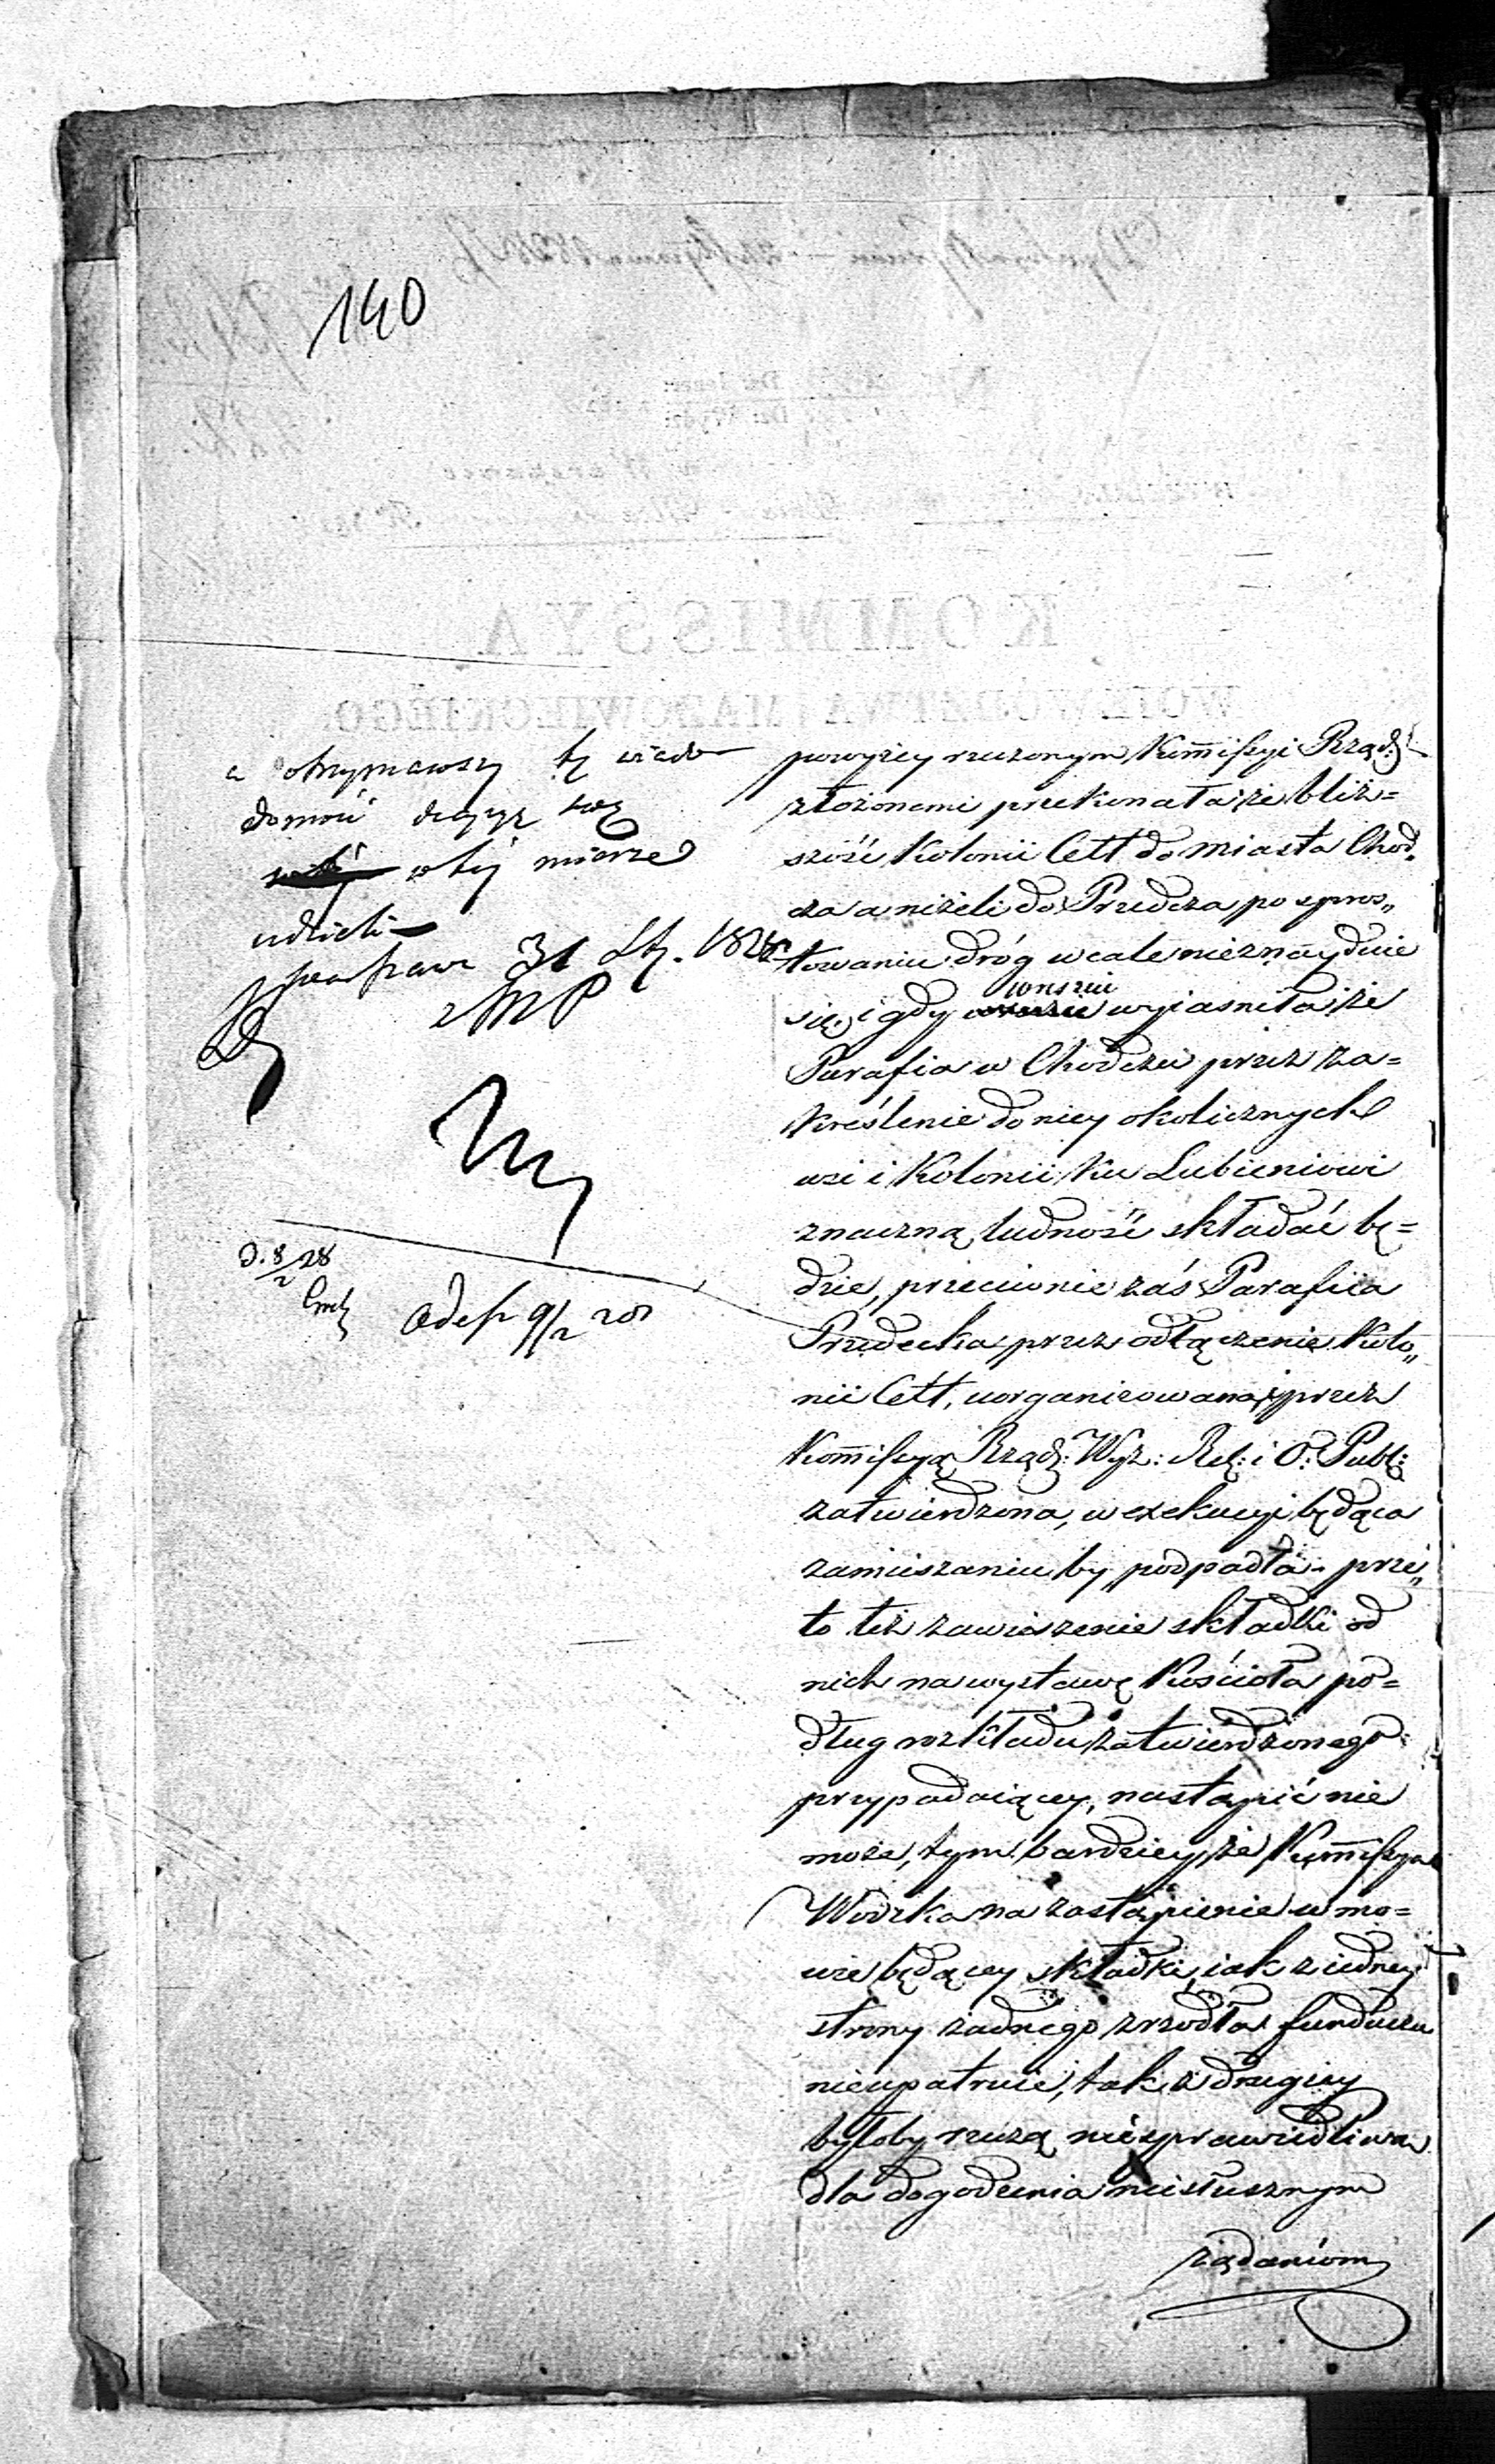 140
a otrzymawszy tę wiado
mość decyzyę swą
w tej mierze
udzieli
Warszawa 31 St. 1828
D. 8/2 28
Odesł 9/2 28
powyżey rzeczonym Kommissyi Rządz:
złożonemi przekonała że bliż=
szość Kolonii Cett do miasta Chod„
cza aniżeli do Przedcza po spros„
towaniu dróg wcale nieznayduie
się, i gdy wreszcie wyiaśniła że
Parafia w Chodczu przez za=
kreślenie do niey okolicznych
wsi i Kolonii ku Lubieniowi
znaczną ludność składać bę=
dzie, przeciwnie zaś Parafiia
Przedecka przez odłączenie Kolo„
nii Cett, uorganizowana i przez
Kommissyą Rządz: Wyz: Rel: i O: Publ:
zatwierdzona, w exekucyi będąca
zamieszaniu by podpadła – prze„
to też zawieszenie składki od
nich na wystawę Kościoła po=
dług rozkładu zatwierdzonego
przypadaiącey, nastąpić nie
może, tym bardziey, że Kommissya
Wodzka na zastąpienie w mo=
wie będącey składki, iak z iedney
strony żadnego zrzodła funduszu
nieupatruie, tak z drugiey
byłoby rzeczą niesprawiedliwą
dla dogodzenia niesłusznym
żądaniom